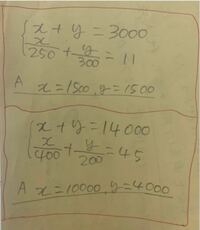 x + y = 3000
x/250 + y/300 = 11
A x = 1500, y = 1500
x + y = 14000
x/400 + y/200 = 45
A x = 10000, y = 4000